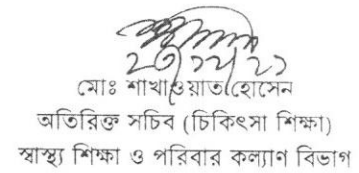 ২৩/১২/২১
মোঃ শাখাওয়াত হোসেন
অতিরিক্ত সচিব (চিকিৎসা শিক্ষা)
স্বাস্থ্য শিক্ষা ও পরিবার কল্যাণ বিভাগ